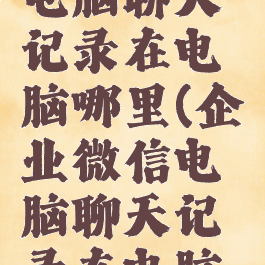 电脑聊天
记录在电
脑哪里(企
业微信电
脑聊天记
录在电脑